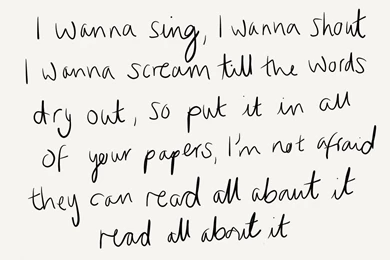 I wanna sing, I wanna shout
I wanna scream till the words
dry out, so put it in all
of your papers, I'm not afraid
they can read all about it
read all about it